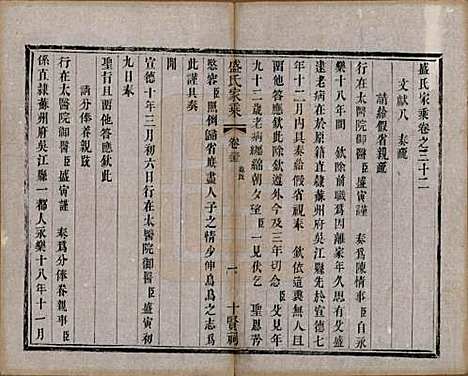 盛氏家乘卷之三十二
文獻八 奏疏
請給假省親疏
行在太醫院御醫臣盛寅謹 奏爲陳情事臣自永
樂十八年間 欽除前職爲因離家年久思有父盛
逮老病在於原籍直隸蘇州府吳江縣先於宣德七
年十二月內具奏給假省視奉 欽依這奧無人且
而他答應欽此除欽遵外今及三年切 父見年
九十二歲老病纏綿朝夕望 一見伏乞 聖恩
盛氏家乘
卷三十二
奏疏
一
十賢祠
憨容臣照例歸省庶盡人子之情少伸烏鳥之志爲
此謹具奏
聞
宣德十年三月初六日行在太醫院御醫臣盛寅初
九日奉
聖旨且而他答應欽此
請分俸養親疏
行在太醫院御醫臣盛寅謹 奏爲分俸養親事臣
係直隸蘇州府吳江縣一都人永樂十八年十一月